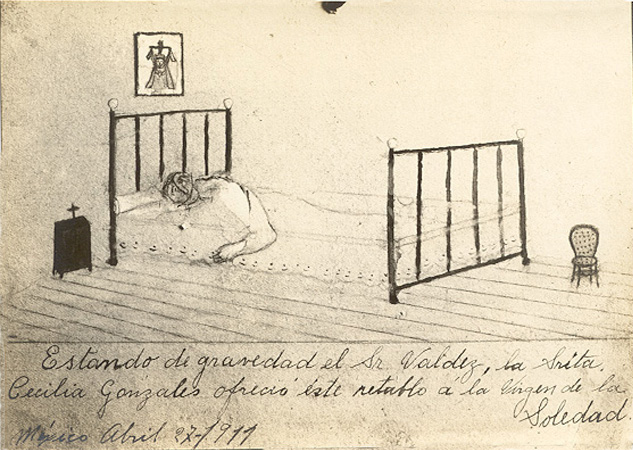 Estando de gravedad el Sr. Valdez, la Srita.
Cecilia Gonzales ofreció éste retablo á la Virgen de la
Soledad.
México Abril 27-1911